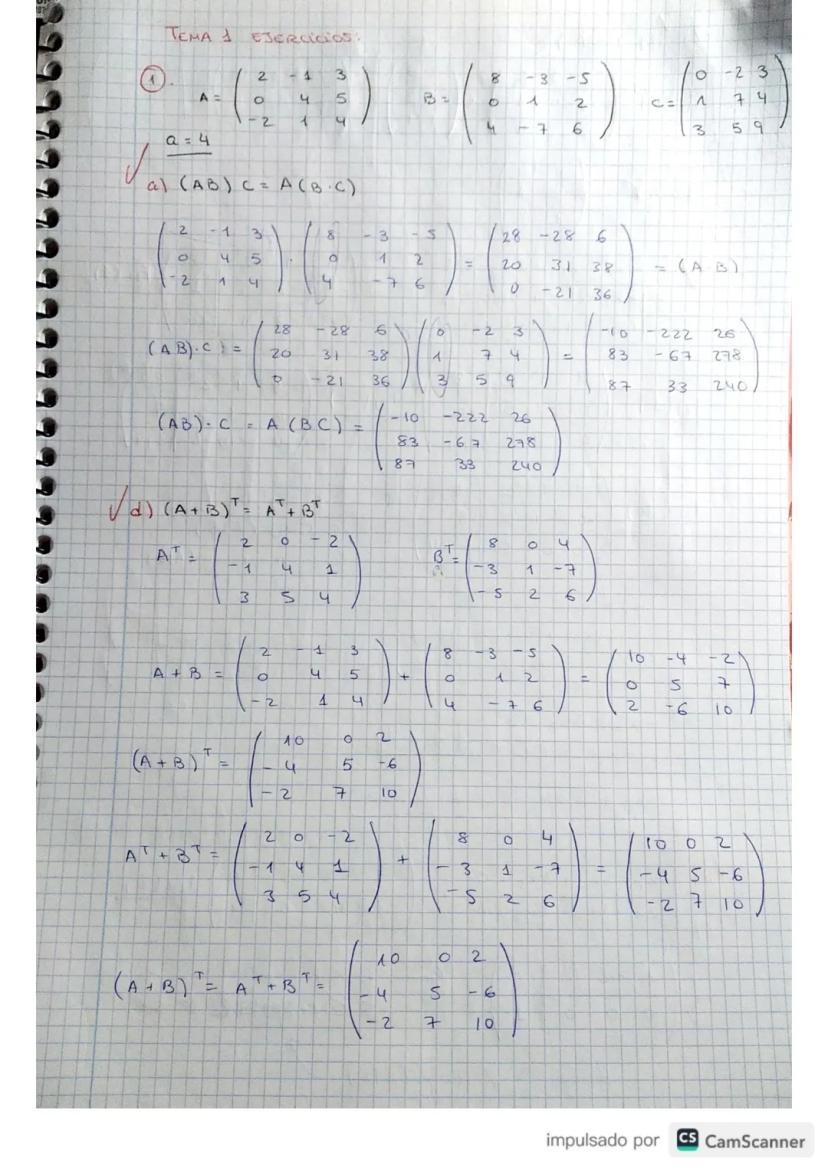 TEMA 1 EJERCICIOS:
① A = ( 2 -1 3 ; 0 4 5 ; -2 1 4 ) B = ( 8 -3 -5 ; 0 1 2 ; 4 -7 6 ) C = ( 0 -2 3 ; 1 7 4 ; 3 5 9 )
a = 4
a) (AB) C = A (B·C)
( 2 -1 3 ; 0 4 5 ; -2 1 4 ) · ( 8 -3 -5 ; 0 1 2 ; 4 -7 6 ) = ( 28 -28 6 ; 20 31 38 ; 0 -21 36 ) = (A B)
(AB)·C ) = ( 28 -28 6 ; 20 31 38 ; 0 -21 36 ) ( 0 -2 3 ; 1 7 4 ; 3 5 9 ) = ( -10 -222 26 ; 83 -67 278 ; 87 33 240 )
(AB)· C = A (BC) = ( -10 -222 26 ; 83 -67 278 ; 87 33 240 )
d) (A+B)ᵀ = Aᵀ + Bᵀ
Aᵀ = ( 2 0 -2 ; -1 4 1 ; 3 5 4 ) Bᵀ = ( 8 0 4 ; -3 1 -7 ; -5 2 6 )
A + B = ( 2 -1 3 ; 0 4 5 ; -2 1 4 ) + ( 8 -3 -5 ; 0 1 2 ; 4 -7 6 ) = ( 10 -4 -2 ; 0 5 7 ; 2 -6 10 )
(A + B)ᵀ = ( 10 0 2 ; -4 5 -6 ; -2 7 10 )
Aᵀ + Bᵀ = ( 2 0 -2 ; -1 4 1 ; 3 5 4 ) + ( 8 0 4 ; -3 1 -7 ; -5 2 6 ) = ( 10 0 2 ; -4 5 -6 ; -2 7 10 )
(A + B)ᵀ = Aᵀ + Bᵀ = ( 10 0 2 ; -4 5 -6 ; -2 7 10 )
impulsado por CS CamScanner